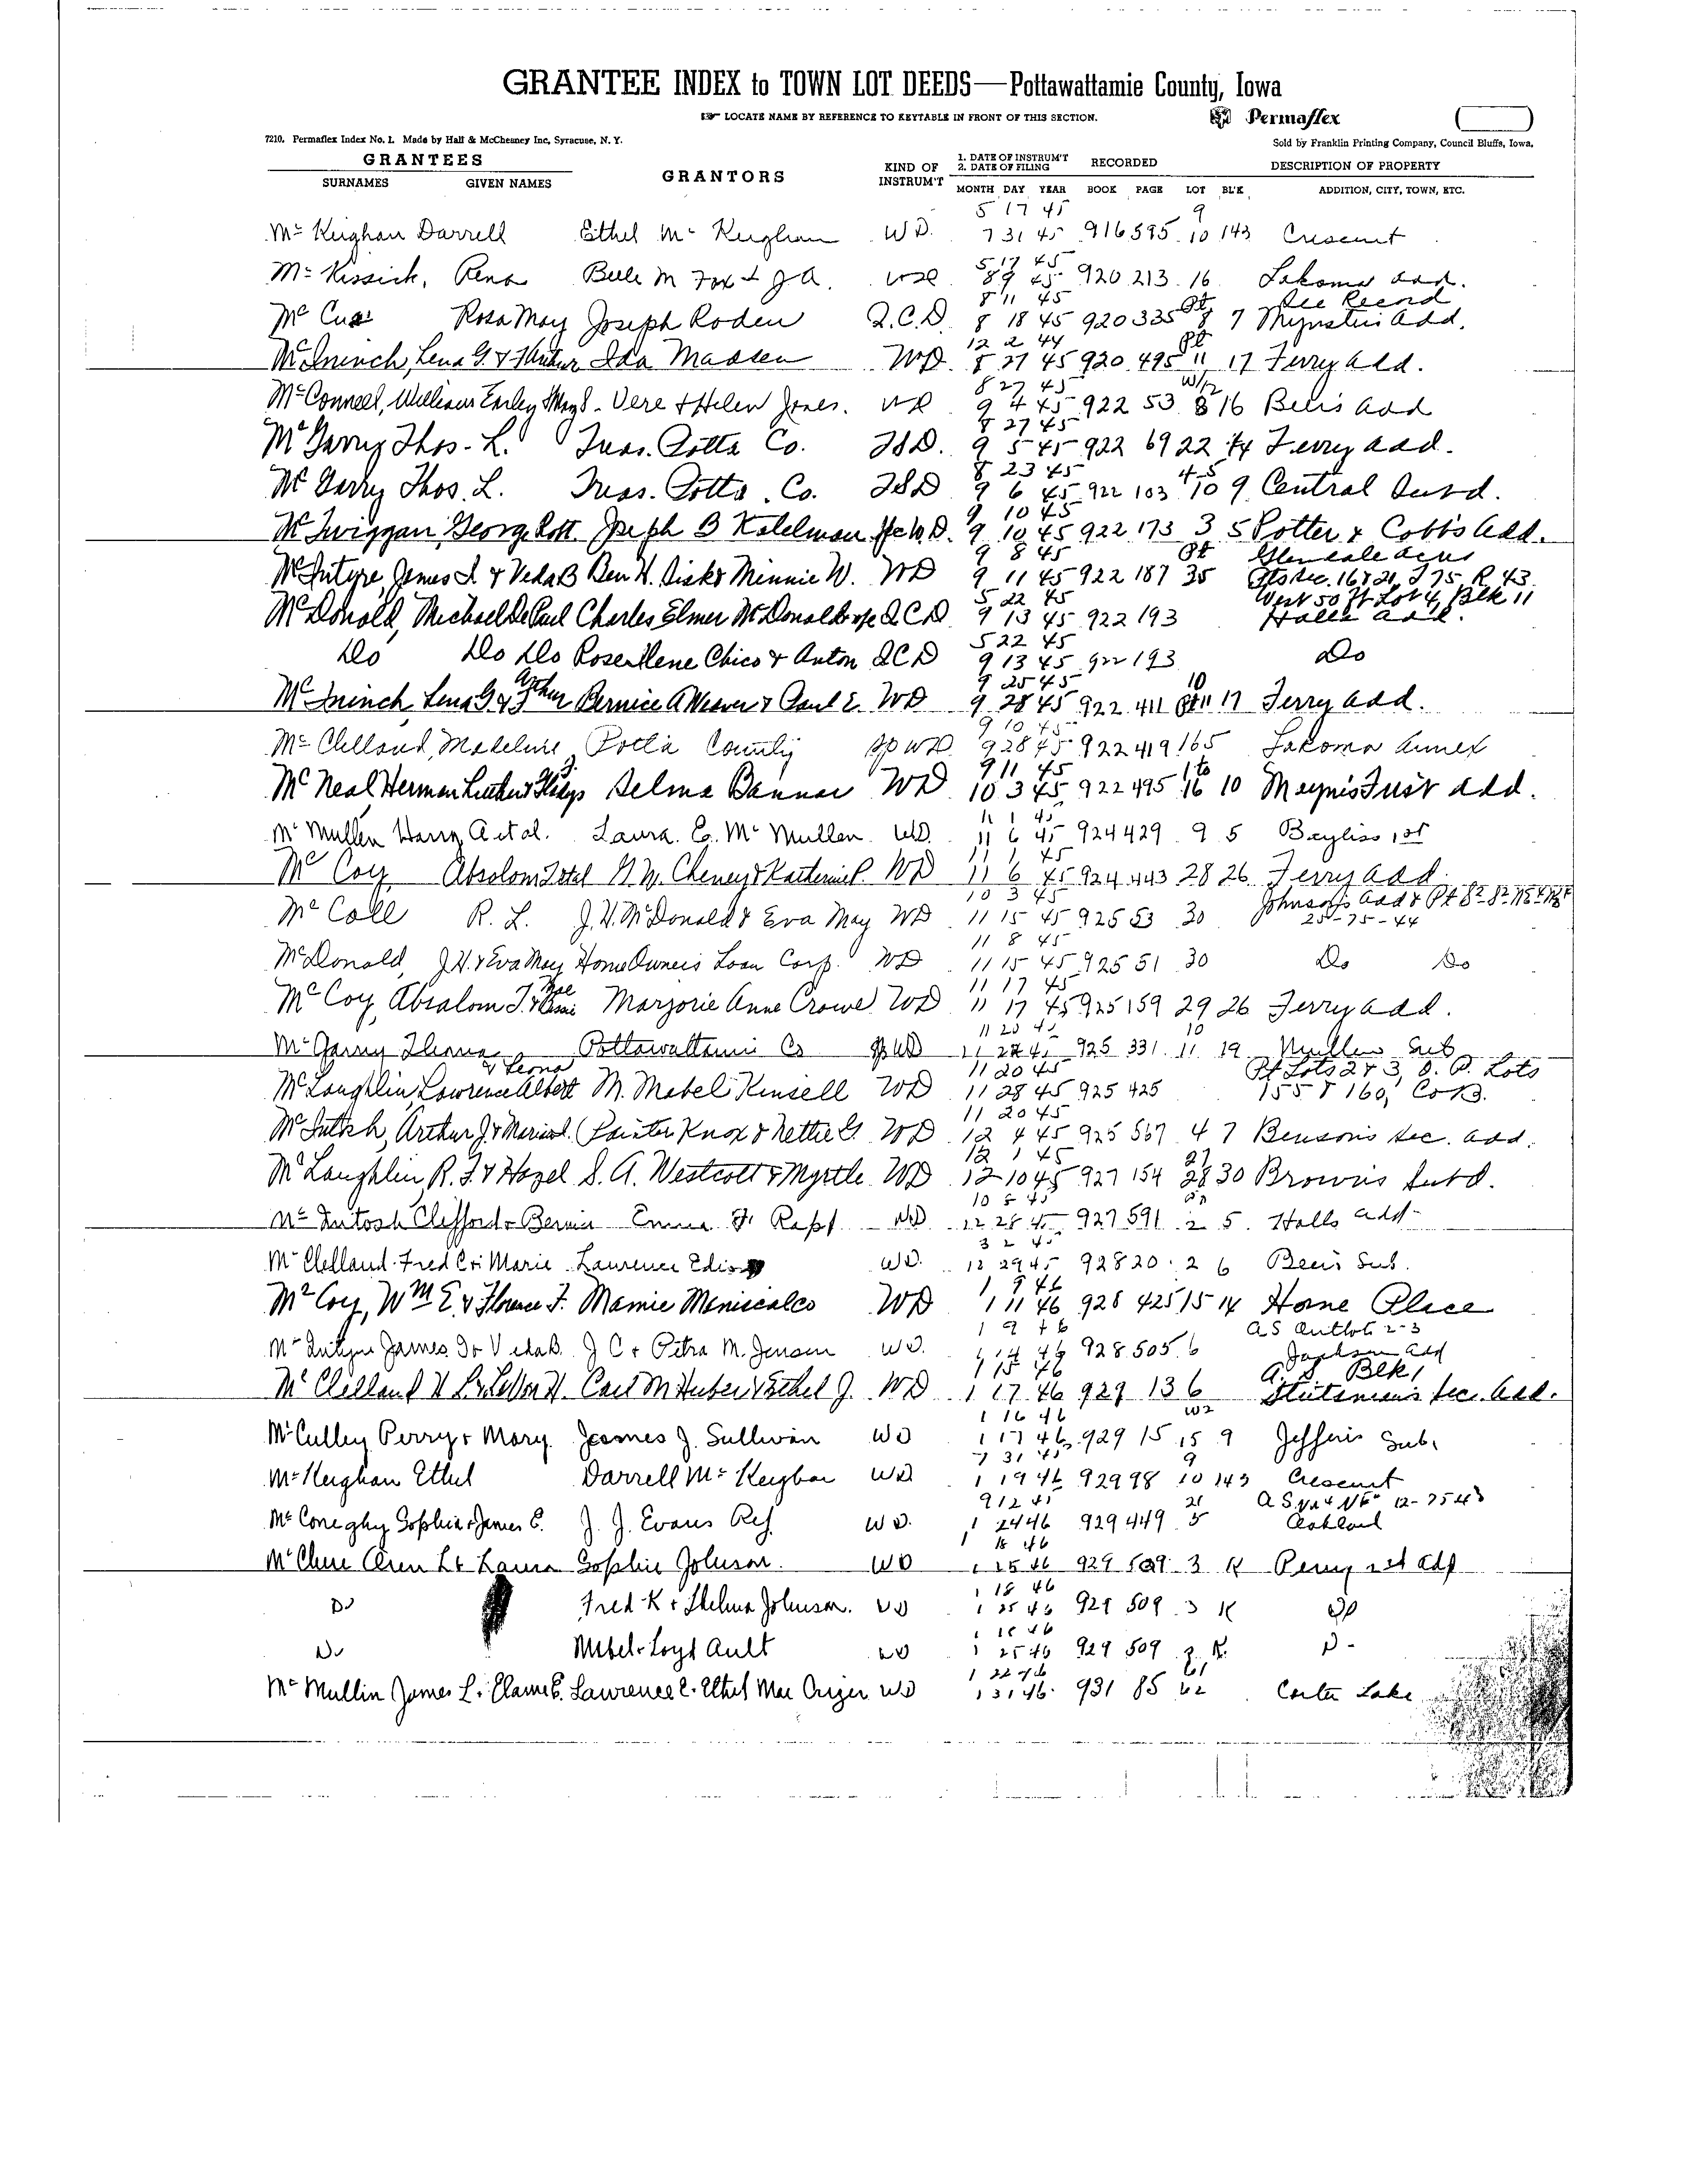 GRANTEE INDEX to TOWN LOT DEEDS—Pottawattamie County, Iowa
☞ LOCATE NAME BY REFERENCE TO KEYTABLE IN FRONT OF THIS SECTION.
Permaflex
7210. Permaflex Index No. 1. Made by Hall & McChesney Inc, Syracuse, N. Y.
Sold by Franklin Printing Company, Council Bluffs, Iowa.
GRANTEES GRANTORS KIND OF INSTRUM'T 1. DATE OF INSTRUM'T 2. DATE OF FILING RECORDED DESCRIPTION OF PROPERTY
SURNAMES GIVEN NAMES MONTH DAY YEAR BOOK PAGE LOT BL'K ADDITION, CITY, TOWN, ETC.
5 17 45 9
Mc Keighan Darrell Ethel Mc Keighan WD. 7 31 45 916 595 10 143 Crescent
5 17 45
Mc Kissick, Rena Belle M Fox + J A. 8 9 45 920 213 16 Lakoma add.
8 11 45 Pt See Record
Mc Rosa May Joseph Roden Q.C.D. 8 18 45 920 335 8 7 Mynsters add.
12 2 44 Pt
McIninch, Lena G. & Arthur Ida Madsen WD. 8 27 45 920 495 11 17 Ferry add.
8 27 45 W/2
McConnell, William Earley Vere & Helen Jones. WD 9 4 45 922 53 8 16 Beers add
8 27 45
McGarry Thos. L. Treas. Potta Co. TSD. 9 5 45 922 69 22 44 Ferry add.
8 23 45 4-5
McGarry Thos. L. Treas. Potta. Co. TSD 9 6 45 922 103 10 9 Central Subd.
9 10 45
McTwiggan, George Joseph B Katelman WD. 9 10 45 922 173 3 5 Potter & Cobb's add.
9 8 45 Pt Glendale acres
McIntyre, James I & Veda B Ben H. Sisk & Minnie W. WD 9 11 45 922 187 35 Pts Sec. 16 & 21, T 75, R 43
5 22 45 West 50 ft Lot 4, Blk 11
McDonald, Michael De Paul Charles Elmer McDonald QCD 9 13 45 922 193 Halls add.
5 22 45
Do Do Do Rose Ilene Chico & Anton QCD 9 13 45 922 193 Do
9 25 45 10
McIninch Lena G & Arthur Bernice A Weaver & Paul E. WD 9 28 45 922 411 Pt 11 17 Ferry add.
9 10 45
Mc Clelland, Madeline J. Potta County Sp WD. 9 28 45 922 419 165 Lakoma Annex
9 11 45 1 to
McNeal, Herman Luther & Gladys Selma Bannar WD 10 3 45 922 495 16 10 Maynes First add.
11 1 45
Mc Mullen Harry A et al. Laura E. Mc Mullen WD. 11 6 45 924 429 9 5 Bayliss 1st
11 1 45
McCoy Absolom et al G. W. Cheney & Katherine P. WD 11 6 45 924 443 28 26 Ferry add.
10 3 45 Johnson's add &
McCall R. L. J. H. McDonald & Eva May WD 11 15 45 925 53 30 25-75-44
11 8 45
McDonald, J.H. & Eva May Home Owners Loan Corp. WD 11 15 45 925 51 30 Do Do
11 17 45
McCoy, Absalom Mae Marjorie Anne Crowe WD 11 17 45 925 159 29 26 Ferry add.
11 23 45 10
Mc Garry Pottawattamie Co Sp WD 11 27 45 925 331 11 19 Mullens Sub
& Leona 11 20 45 Pt Lots 2 & 3, O. P. Lots
McLaughlin, Lawrence Albert M. Mabel Kinsell WD 11 28 45 925 425 155 & 160, Co B.
11 20 45
McIntosh, Arthur J. & Painter Knox & Nettie G. WD 12 4 45 925 567 4 7 Benson's Sec. add.
12 1 45 27
McLaughlin, R. F. & Hazel S. A. Westcott & Myrtle WD 12 10 45 927 154 28 30 Browns Subd.
10 5 45
McIntosh Clifford + Bernice Emma F. Rapf WD 12 28 45 927 591 2 5 Halls add
3 2 45
McClelland Fred C + Marie Laurence WD. 12 29 45 928 20 2 6 Beers Sub.
1 9 46
McCoy, Wm E. & Florence F. Mamie Maniscalco WD 1 11 46 928 425 15 14 Home Place
1 9 46 AS Outlots 2-3
McIntyre James I + Veda B. J C + Petra M. Jensen WD. 1 14 46 928 505 6 Jackson add
1 15 46 A. S. Blk 1
McClelland Carl M Huber & Ethel J. WD 1 17 46 929 13 6 Stutsman's Sec. add.
1 16 46 W2
McCulley Perry + Mary James J. Sullivan WD 1 17 46 929 15 15 9 Jefferis Sub.
7 31 45 9
McKeighan Ethel Darrell McKeighan WD 1 19 46 929 98 10 143 Crescent
9 12 41 21 12-75-43
McConeghy Sophia + James E. J. J. Evans Ref WD. 1 24 46 929 449 5 Oakland
1 18 46
McClure Oren L + Laura Sophie Johnson. WD 1 25 46 929 509 3 K Perry 1st add
1 18 46
Do Fred K + Thelma Johnson. WD 1 25 46 929 509 3 K Do
1 18 46
Do Mebel + Loyd Ault WD 1 25 46 929 509 3 K. Do
1 22 46 61
McMullin James L. + Elaine E. Lawrence C. + Ethel Mae WD 1 31 46 931 85 62 Carter Lake